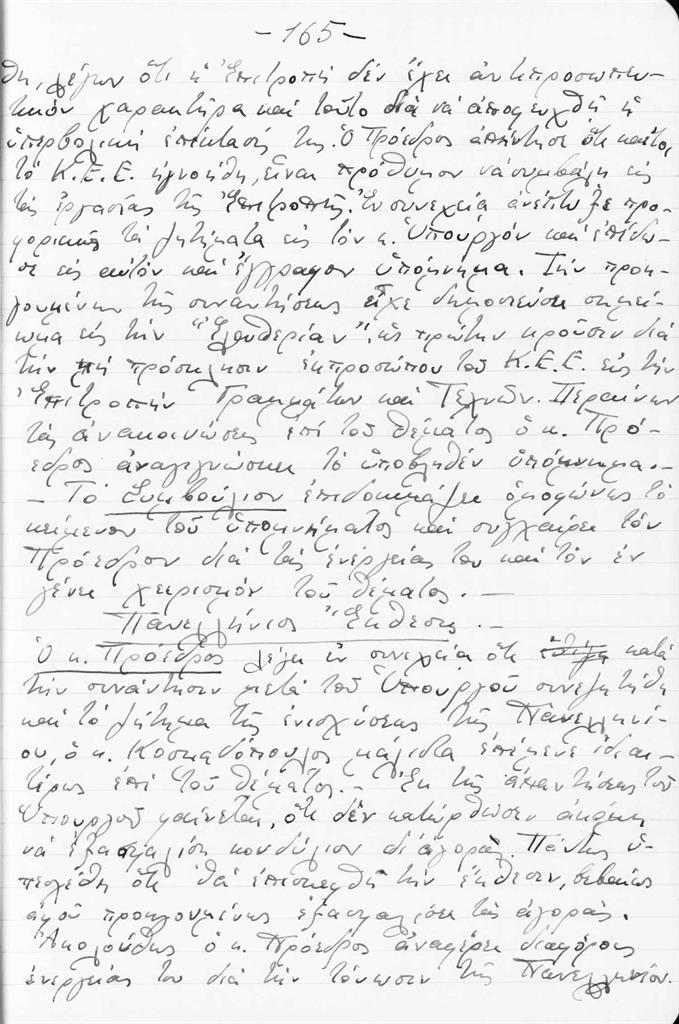 -165-
θη, λέγων ὅτι ἡ Ἐπιτροπὴ δέν ἔχει ἀντιπροσωπευ-
τικόν χαρακτῆρα καί τοῦτο διά νά ἀποφευχθῇ ἡ
ὑπερβολική ἐπέκτασίς της. Ὁ Πρόεδρος ἀπήντησε ὅτι καίτοι
τό Κ.Ε.Ε. ἠγνοήθη, εἶναι πρόθυμον νά συμβάλῃ εἰς
τάς ἐργασίας τῆς Ἐπιτροπῆς. Ἐν συνεχείᾳ ἀνέπτυξε προ-
φορικῶς τά ζητήματα εἰς τόν κ. Ὑπουργόν καί ἐπέδω-
σε εἰς αὐτόν καί ἔγγραφον ὑπόμνημα. Τήν προη-
γουμένην τῆς συναντήσεως εἶχε δημοσιεύσει σημεί-
ωμα εἰς τήν "Ἐλευθερίαν", ὡς πρώτην κροῦσιν διά
τήν μή πρόσκλησιν ἐκπροσώπου τοῦ Κ.Ε.Ε. εἰς τήν
Ἐπιτροπήν Γραμμάτων καί Τεχνῶν. Περαίνων
τάς ἀνακοινώσεις ἐπί τοῦ θέματος ὁ κ. Πρό-
εδρος ἀναγιγνώσκει τό ὑποβληθέν ὑπόμνημα.-
- Τό Συμβούλιον ἐπιδοκιμάζει ὁμοφώνως τό
κείμενον τοῦ ὑπομνήματος καί συγχαίρει τόν
Πρόεδρον διά τάς ἐνεργείας του καί τόν ἐν
γένει χειρισμόν τοῦ θέματος. -
Πανελλήνιος Ἔκθεσις. -
Ὁ κ. Πρόεδρος λέγει ἐν συνεχείᾳ ὅτι κατά
τήν συνάντησιν μετά τοῦ Ὑπουργοῦ συνεζητήθη
καί τό ζήτημα τῆς ἐνισχύσεως τῆς Πανελληνί-
ου, ὁ κ. Κοσμαδόπουλος μάλιστα ἐπέμενε ἰδιαι-
τέρως ἐπί τοῦ θέματος. - Ἐκ τῆς ἀπαντήσεως τοῦ
Ὑπουργοῦ φαίνεται, ὅτι δέν κατώρθωσεν ἀκόμη
νά ἐξασφαλίσῃ κονδύλιον δι' ἀγοράς. Πάντως ὑ-
πεσχέθη ὅτι θά ἐπισκεφθῇ τήν ἔκθεσιν, βεβαίως
ἀφοῦ προηγουμένως ἐξασφαλίσει τάς ἀγοράς.
Ἀκολούθως ὁ κ. Πρόεδρος ἀναφέρει διαφόρους
ἐνεργείας του διά τήν τόνωσιν τῆς Πανελληνίου.